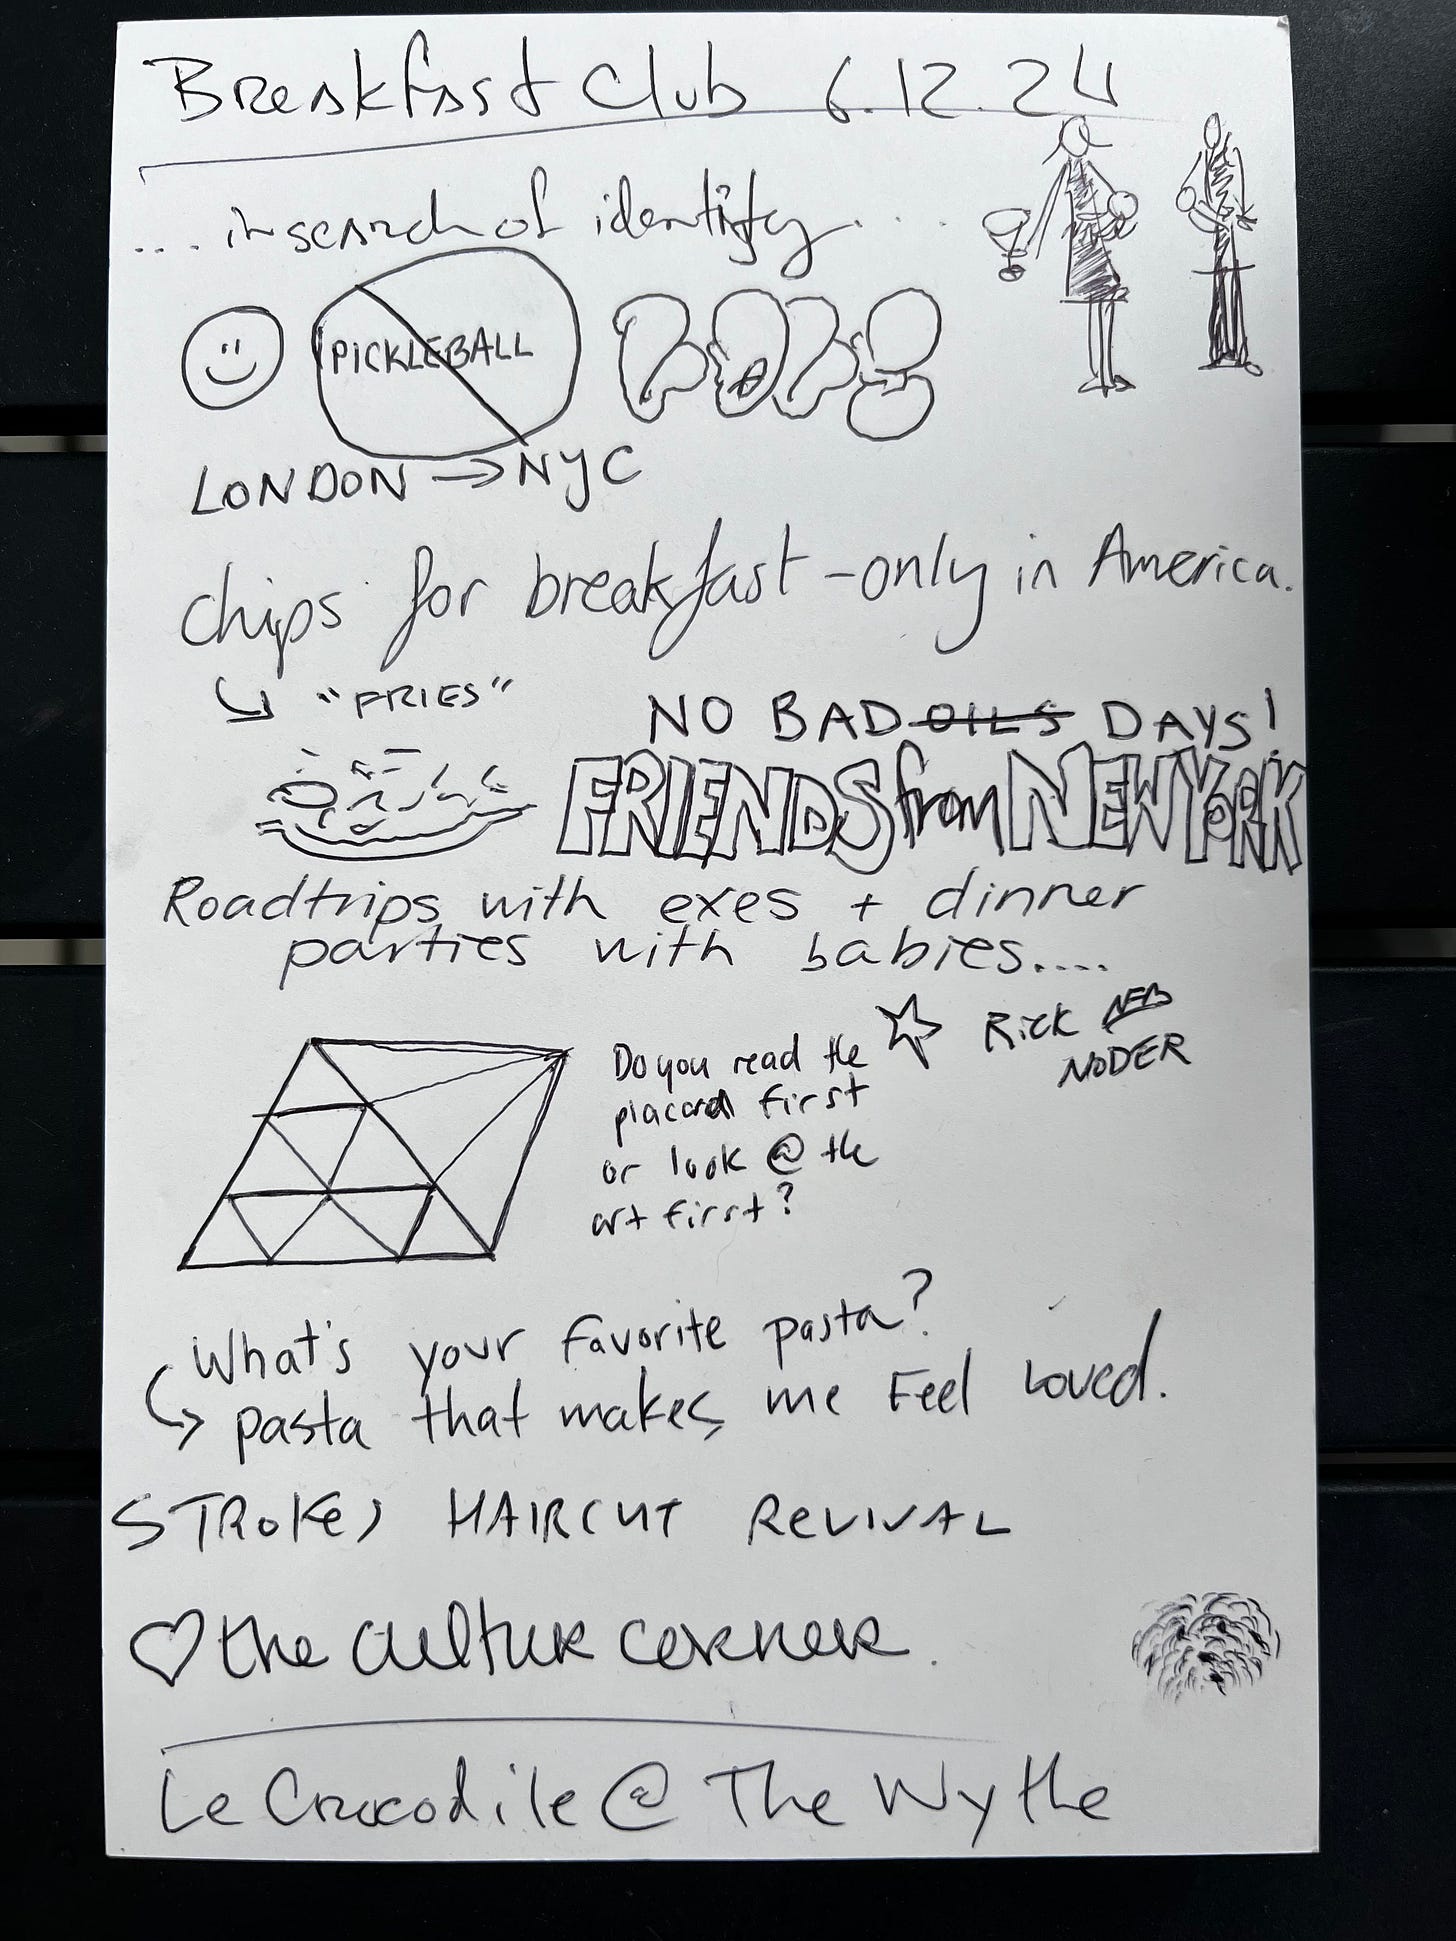 Breakfast Club 6.12.24
... in search of identity...
PICKLEBALL
LONDON → NYC
Chips for breakfast - only in America.
"FRIES"
NO BAD OILS DAYS!
FRIENDS from NEW YORK
Roadtrips with exes + dinner
parties with babies....
Do you read the
placard first
or look @ the
art first?
Rick
NODER
What's your favorite pasta?
pasta that makes me Feel Loved.
STROKES HAIRCUT REVIVAL
♡ the culture corner.
Le Crocodile @ The Wythe